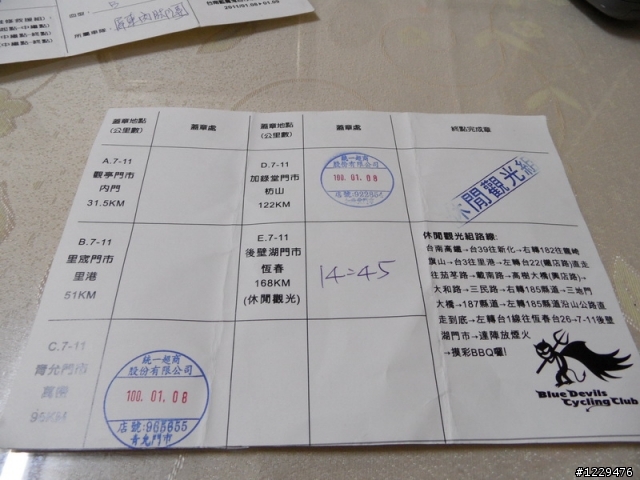 2011/01/08~01/09
所屬車隊:
蓋章地點
(公里數)
蓋章處
蓋章地點
(公里數)
蓋章處
終點完成章
A.7-11
觀亭門市
內門
31.5KM
D.7-11
加祿堂門市
枋山
122KM
統一超商
股份有限公司
100. 01. 08
休閒觀光組
B.7-11
里宬門市
里港
51KM
E.7-11
後壁湖門市
恆春
168KM
(休閒觀光)
14:45
休閒觀光組路線:
台南高鐵→台39往新化→右轉182往龍崎
旗山→台3往里港→左轉台22(鐵店路)直走
往茄苳路→載南路→高樹大橋(興店路)→
大和路→三民路→右轉185縣道→三地門
大橋→187縣道→左轉185縣道沿山公路直
走到底→左轉台1線往恆春台26→7-11後壁
湖門市→達陣放煙火
→摸彩BBQ囉!
C.7-11
青允門市
萬巒
96KM
統一超商
股份有限公司
100. 01. 08
店號:965655
青允門市
Blue Devils
Cycling Club
#1229476